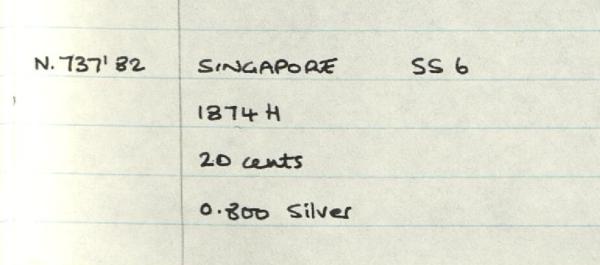 N.737'82 SINGAPORE SS 6
1874 H
20 cents
0.800 Silver